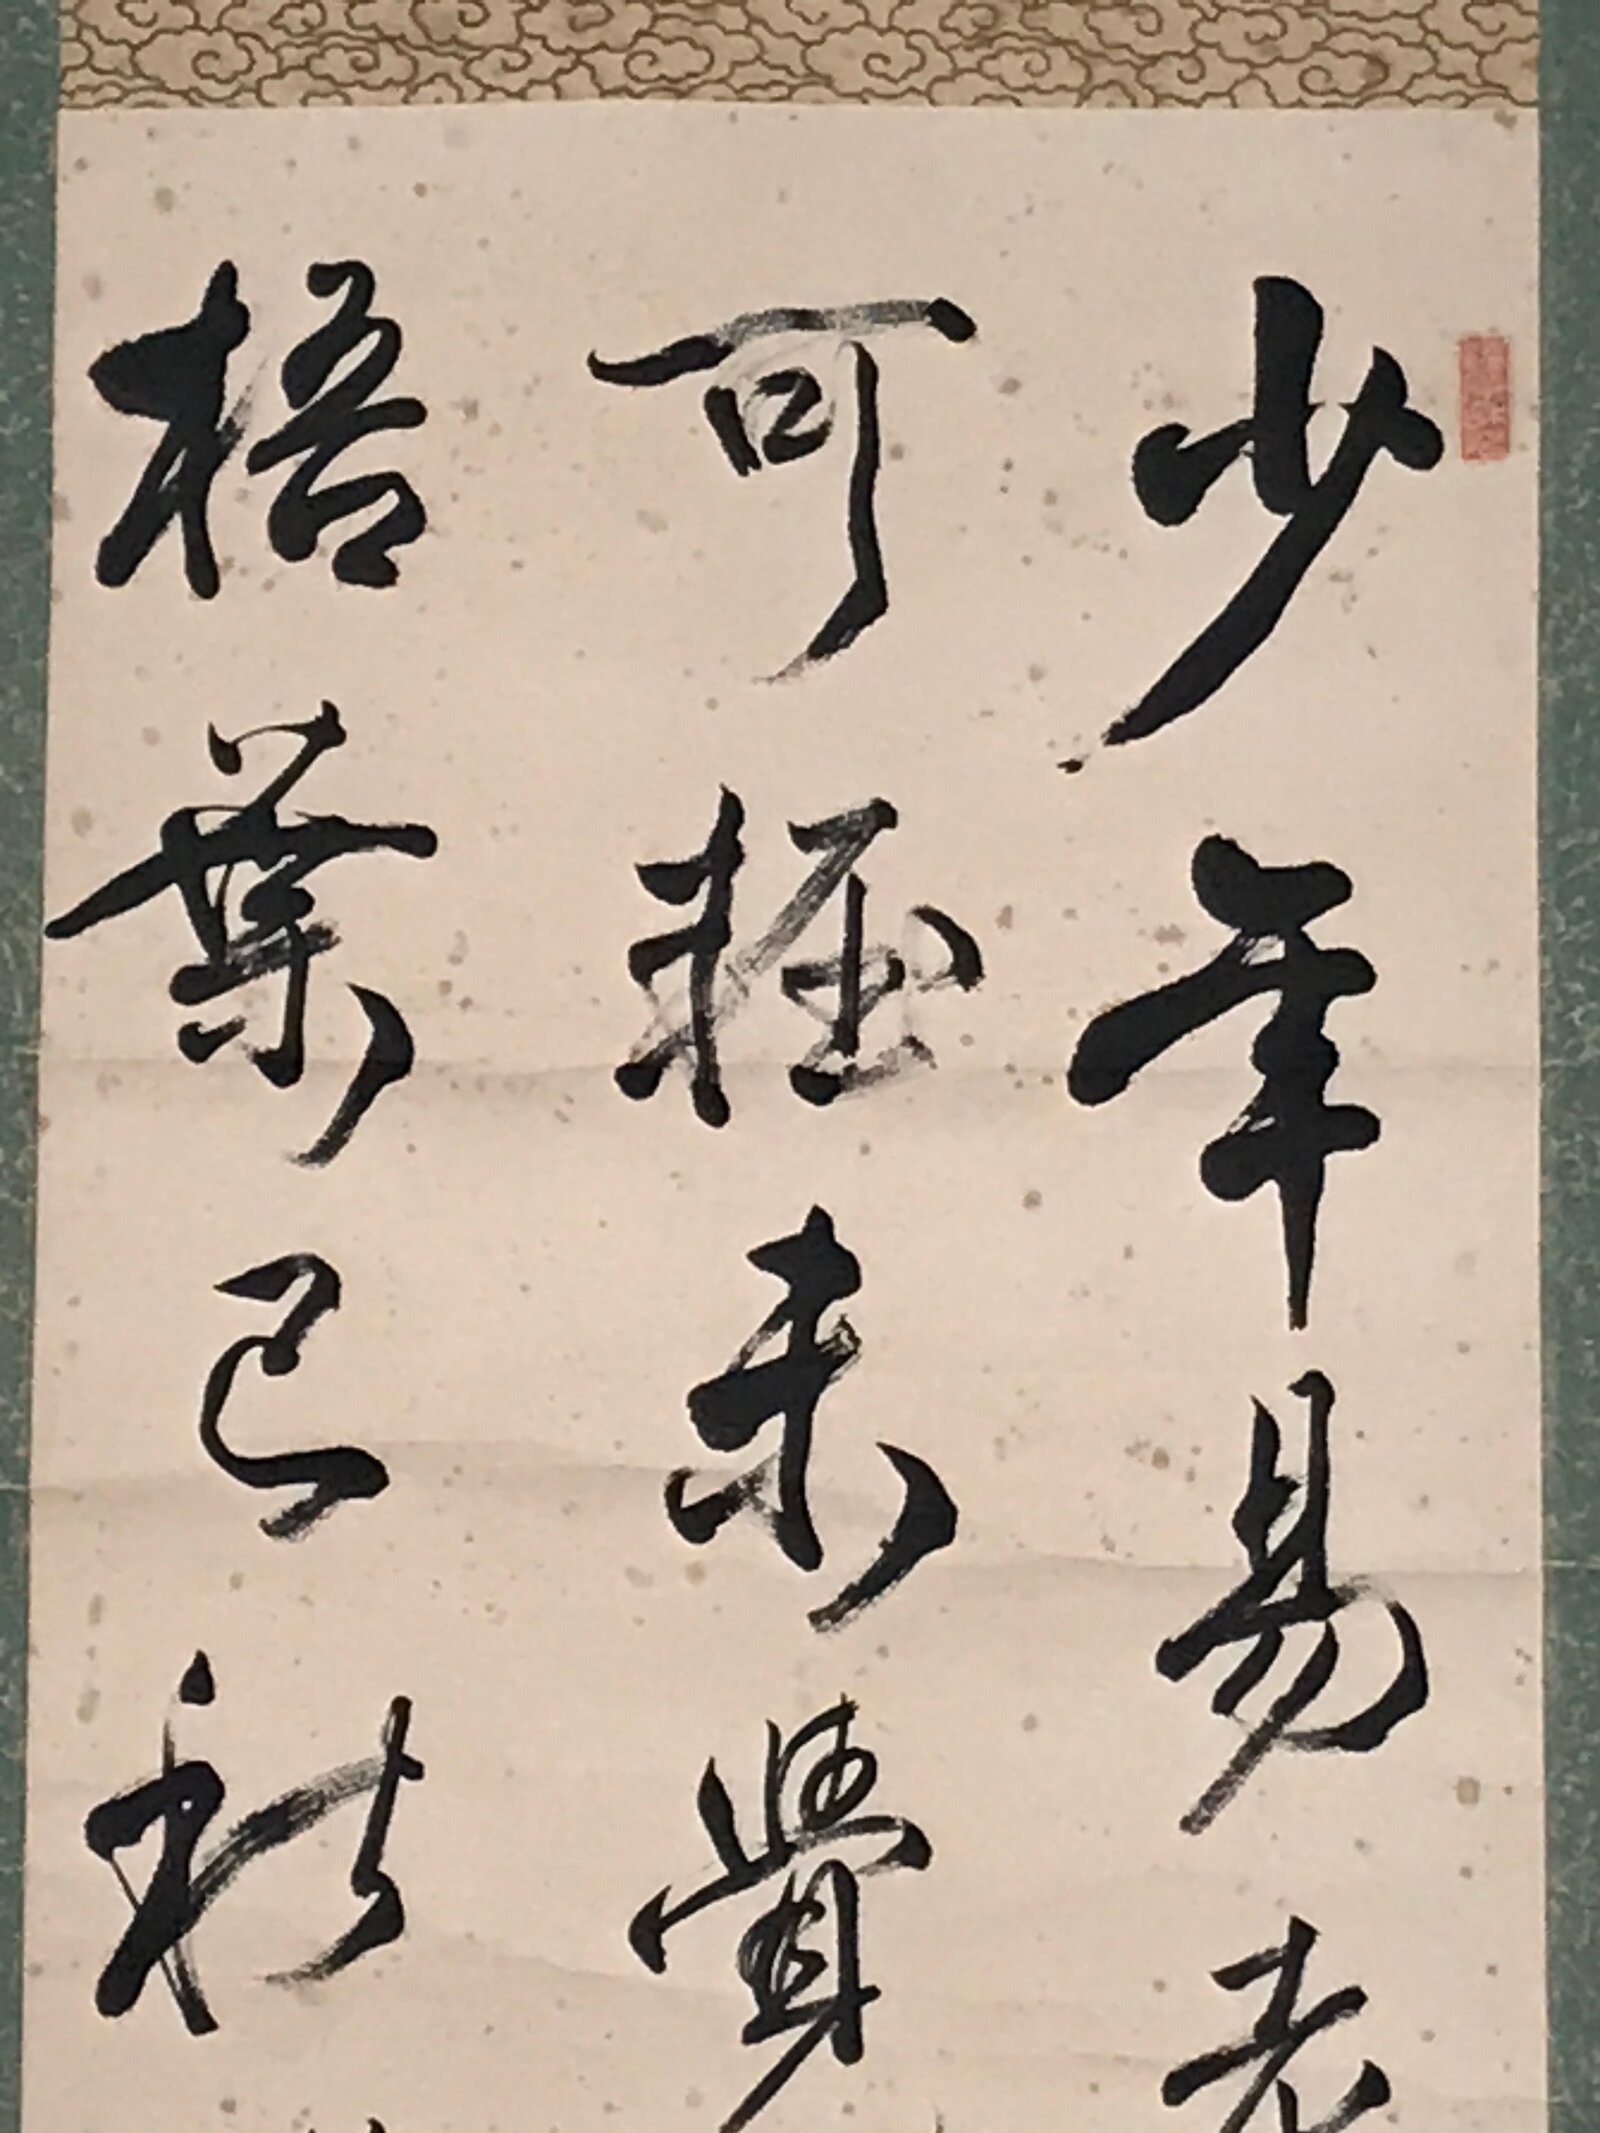 少年易老
可軽未覺
梧葉已秋